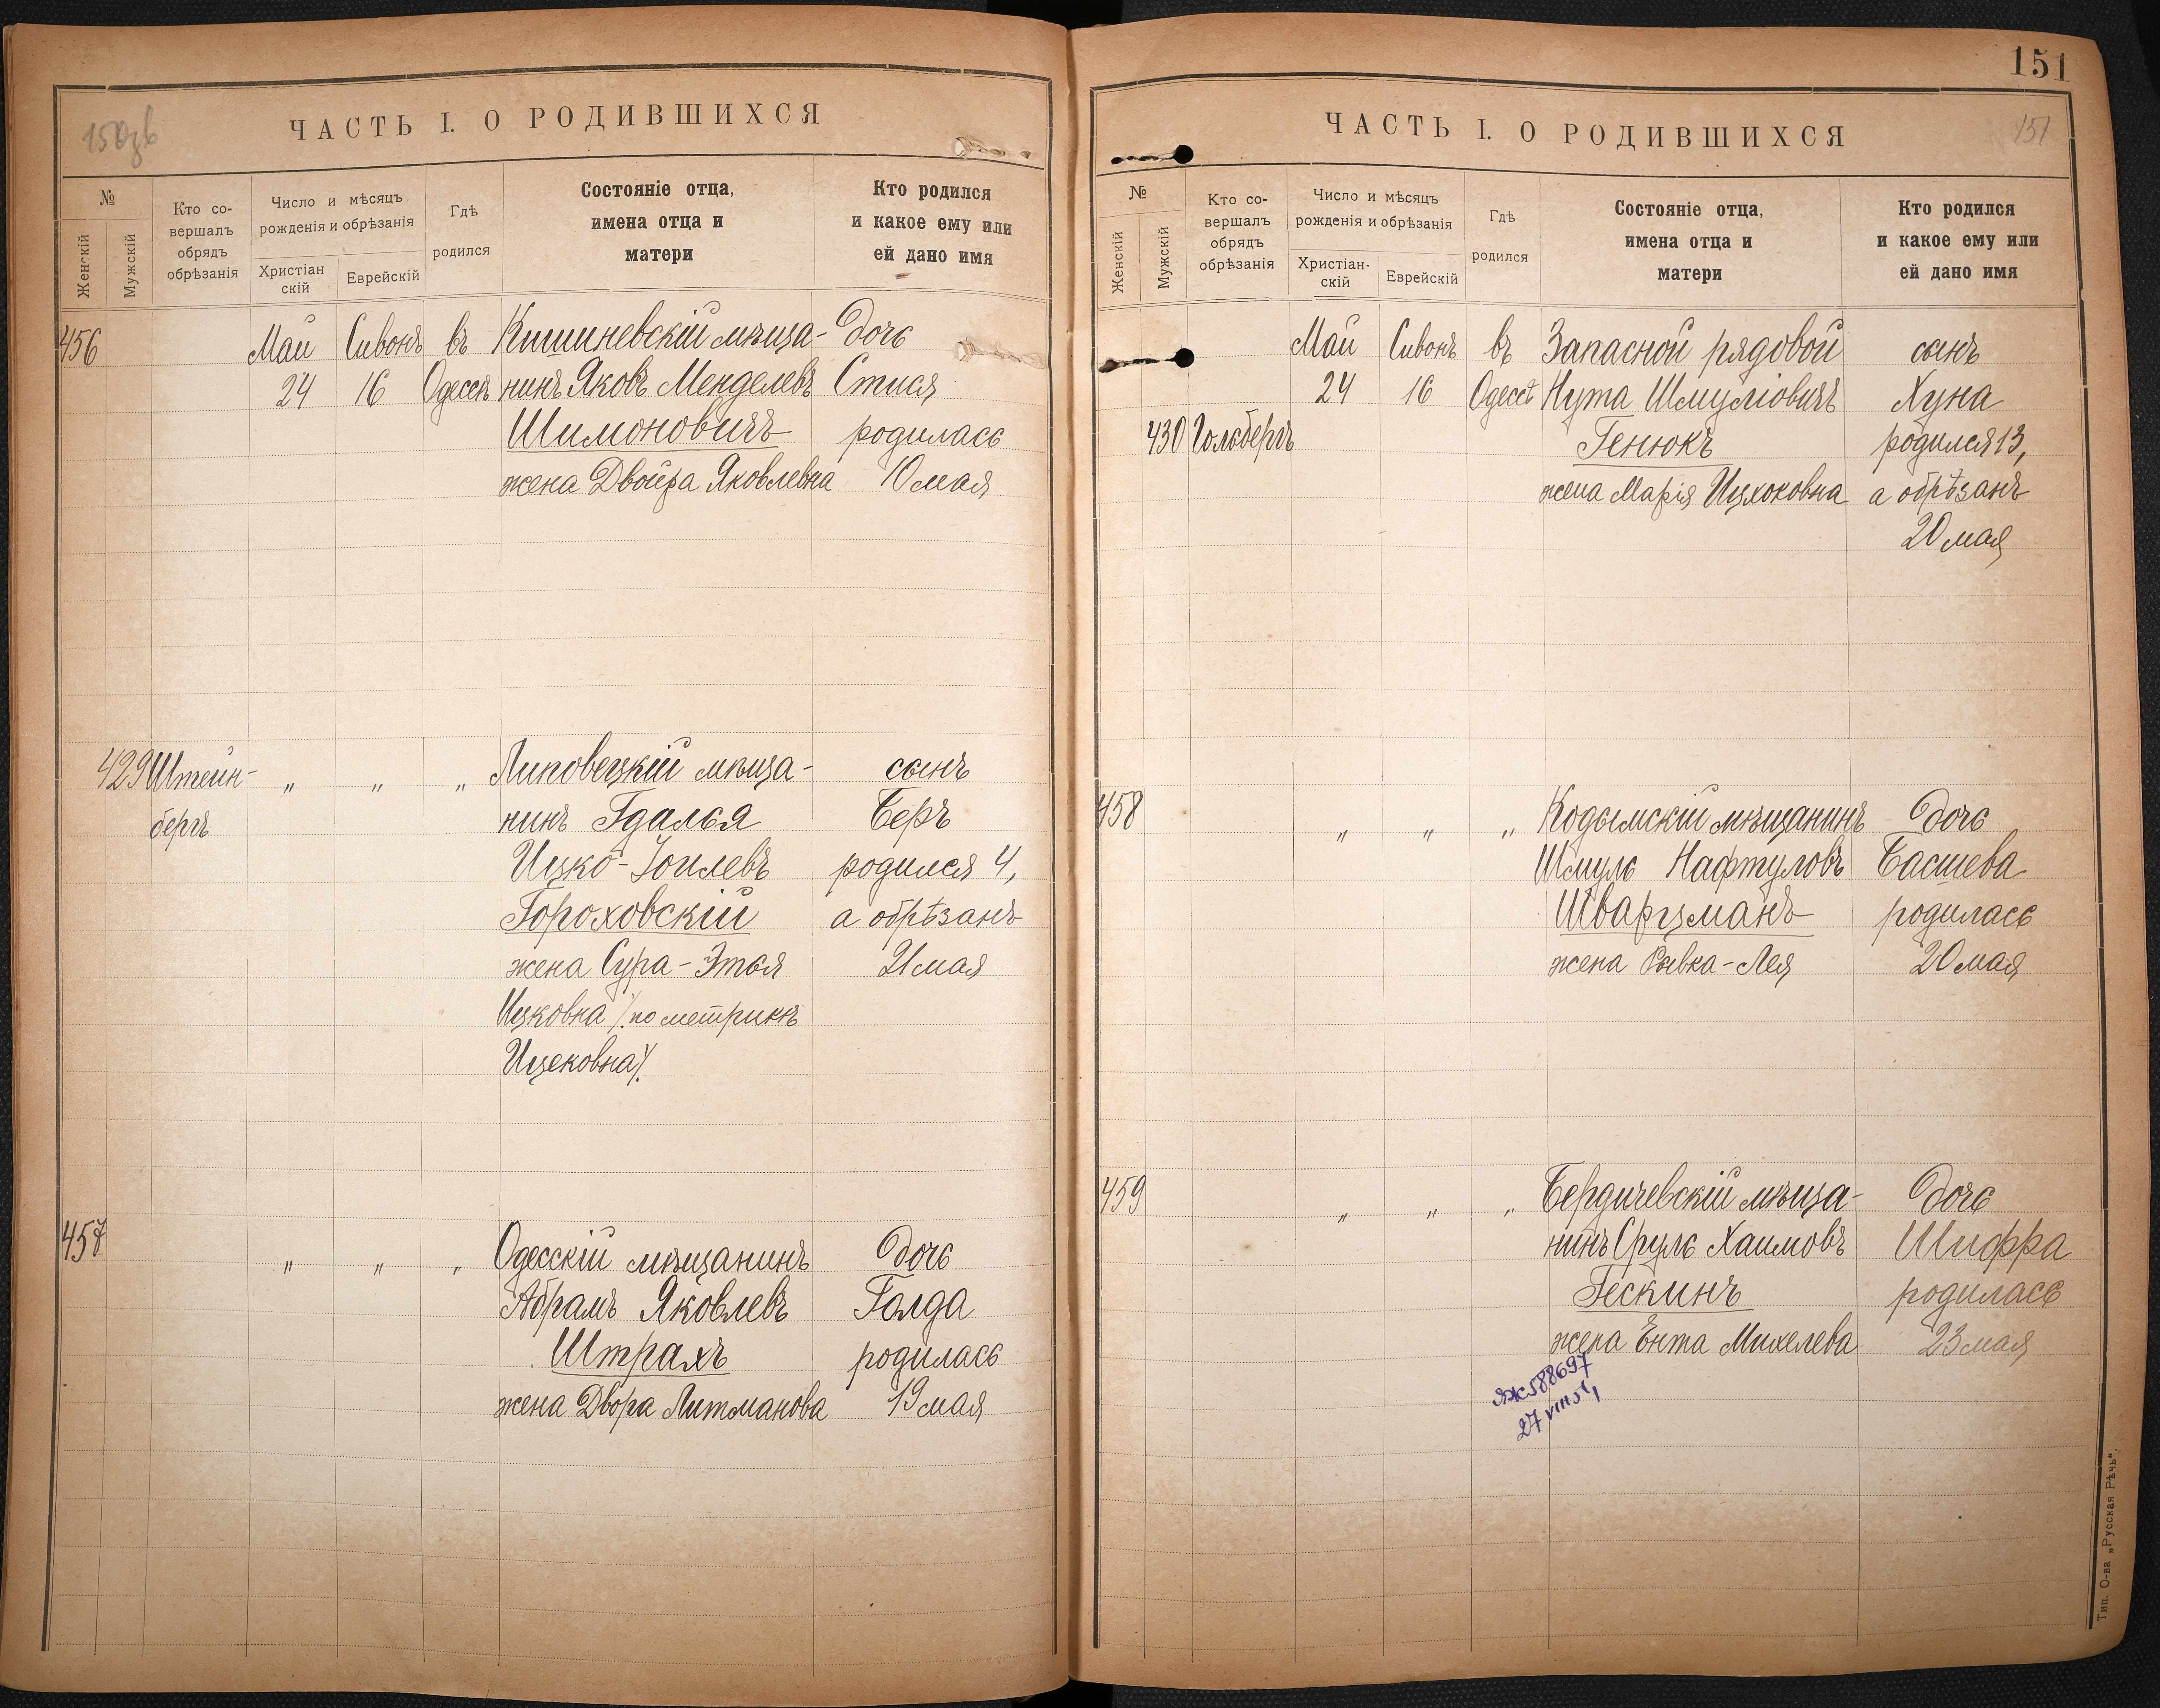 ЧАСТЬ I. О РОДИВШИХСЯ
№
Женскій
Мужскій
Кто со-
вершалъ
обрядъ
обрѣзанія
Число и мѣсяцъ
рожденія и обрѣзанія
Христіан
скій
Еврейскій
Гдѣ
родился
Состояніе отца,
имена отца и
матери
Кто родился
и какое ему или
ей дано имя
456 Май Сивонъ въ Кишиневскій мѣща- дочь
24 16 Одессѣ нинъ Яковъ Менделевъ
Шимоновичъ родилась
жена Двойра Яковлевна 10 мая
429 Штейн- „ „ „ Липовецкій мѣща- сынъ
бергъ нинъ Гдалья Беръ
Ицко-Іоилевъ родился 4,
Гороховскій а обрѣзанъ
жена Сура-Этля 21 мая
Ицковна /по метрикѣ
Ицековна/.
457 „ „ „ Одесскій мѣщанинъ дочь
Абрамъ Яковлевъ Голда
Штрахъ родилась
жена Двора Литманова 19 мая
151
ЧАСТЬ I. О РОДИВШИХСЯ
151
№
Женскій
Мужскій
Кто со-
вершалъ
обрядъ
обрѣзанія
Число и мѣсяцъ
рожденія и обрѣзанія
Христіан-
скій
Еврейскій
Гдѣ
родился
Состояніе отца,
имена отца и
матери
Кто родился
и какое ему или
ей дано имя
Май Сивонъ въ Запасной рядовой сынъ
24 16 Одессѣ Нута Шмуліовичъ Хуна
430 Гольбергъ Генюкъ родился 13,
жена Марія Ицхоковна а обрѣзанъ
20 мая
458 „ „ „ Кодымскій мѣщанинъ дочь
Шмуль Нафтуловъ Басшева
Шварцманъ родилась
жена Рывка-Лея 20 мая
459 „ „ „ Бердичевскій мѣща- дочь
нинъ Сруль Хаимовъ Шифра
Гескинъ родилась
жена Ента Михелева 23 мая
ЯЖ588697
27 VIII 51
Тип. О-ва „Русская Рѣчь“